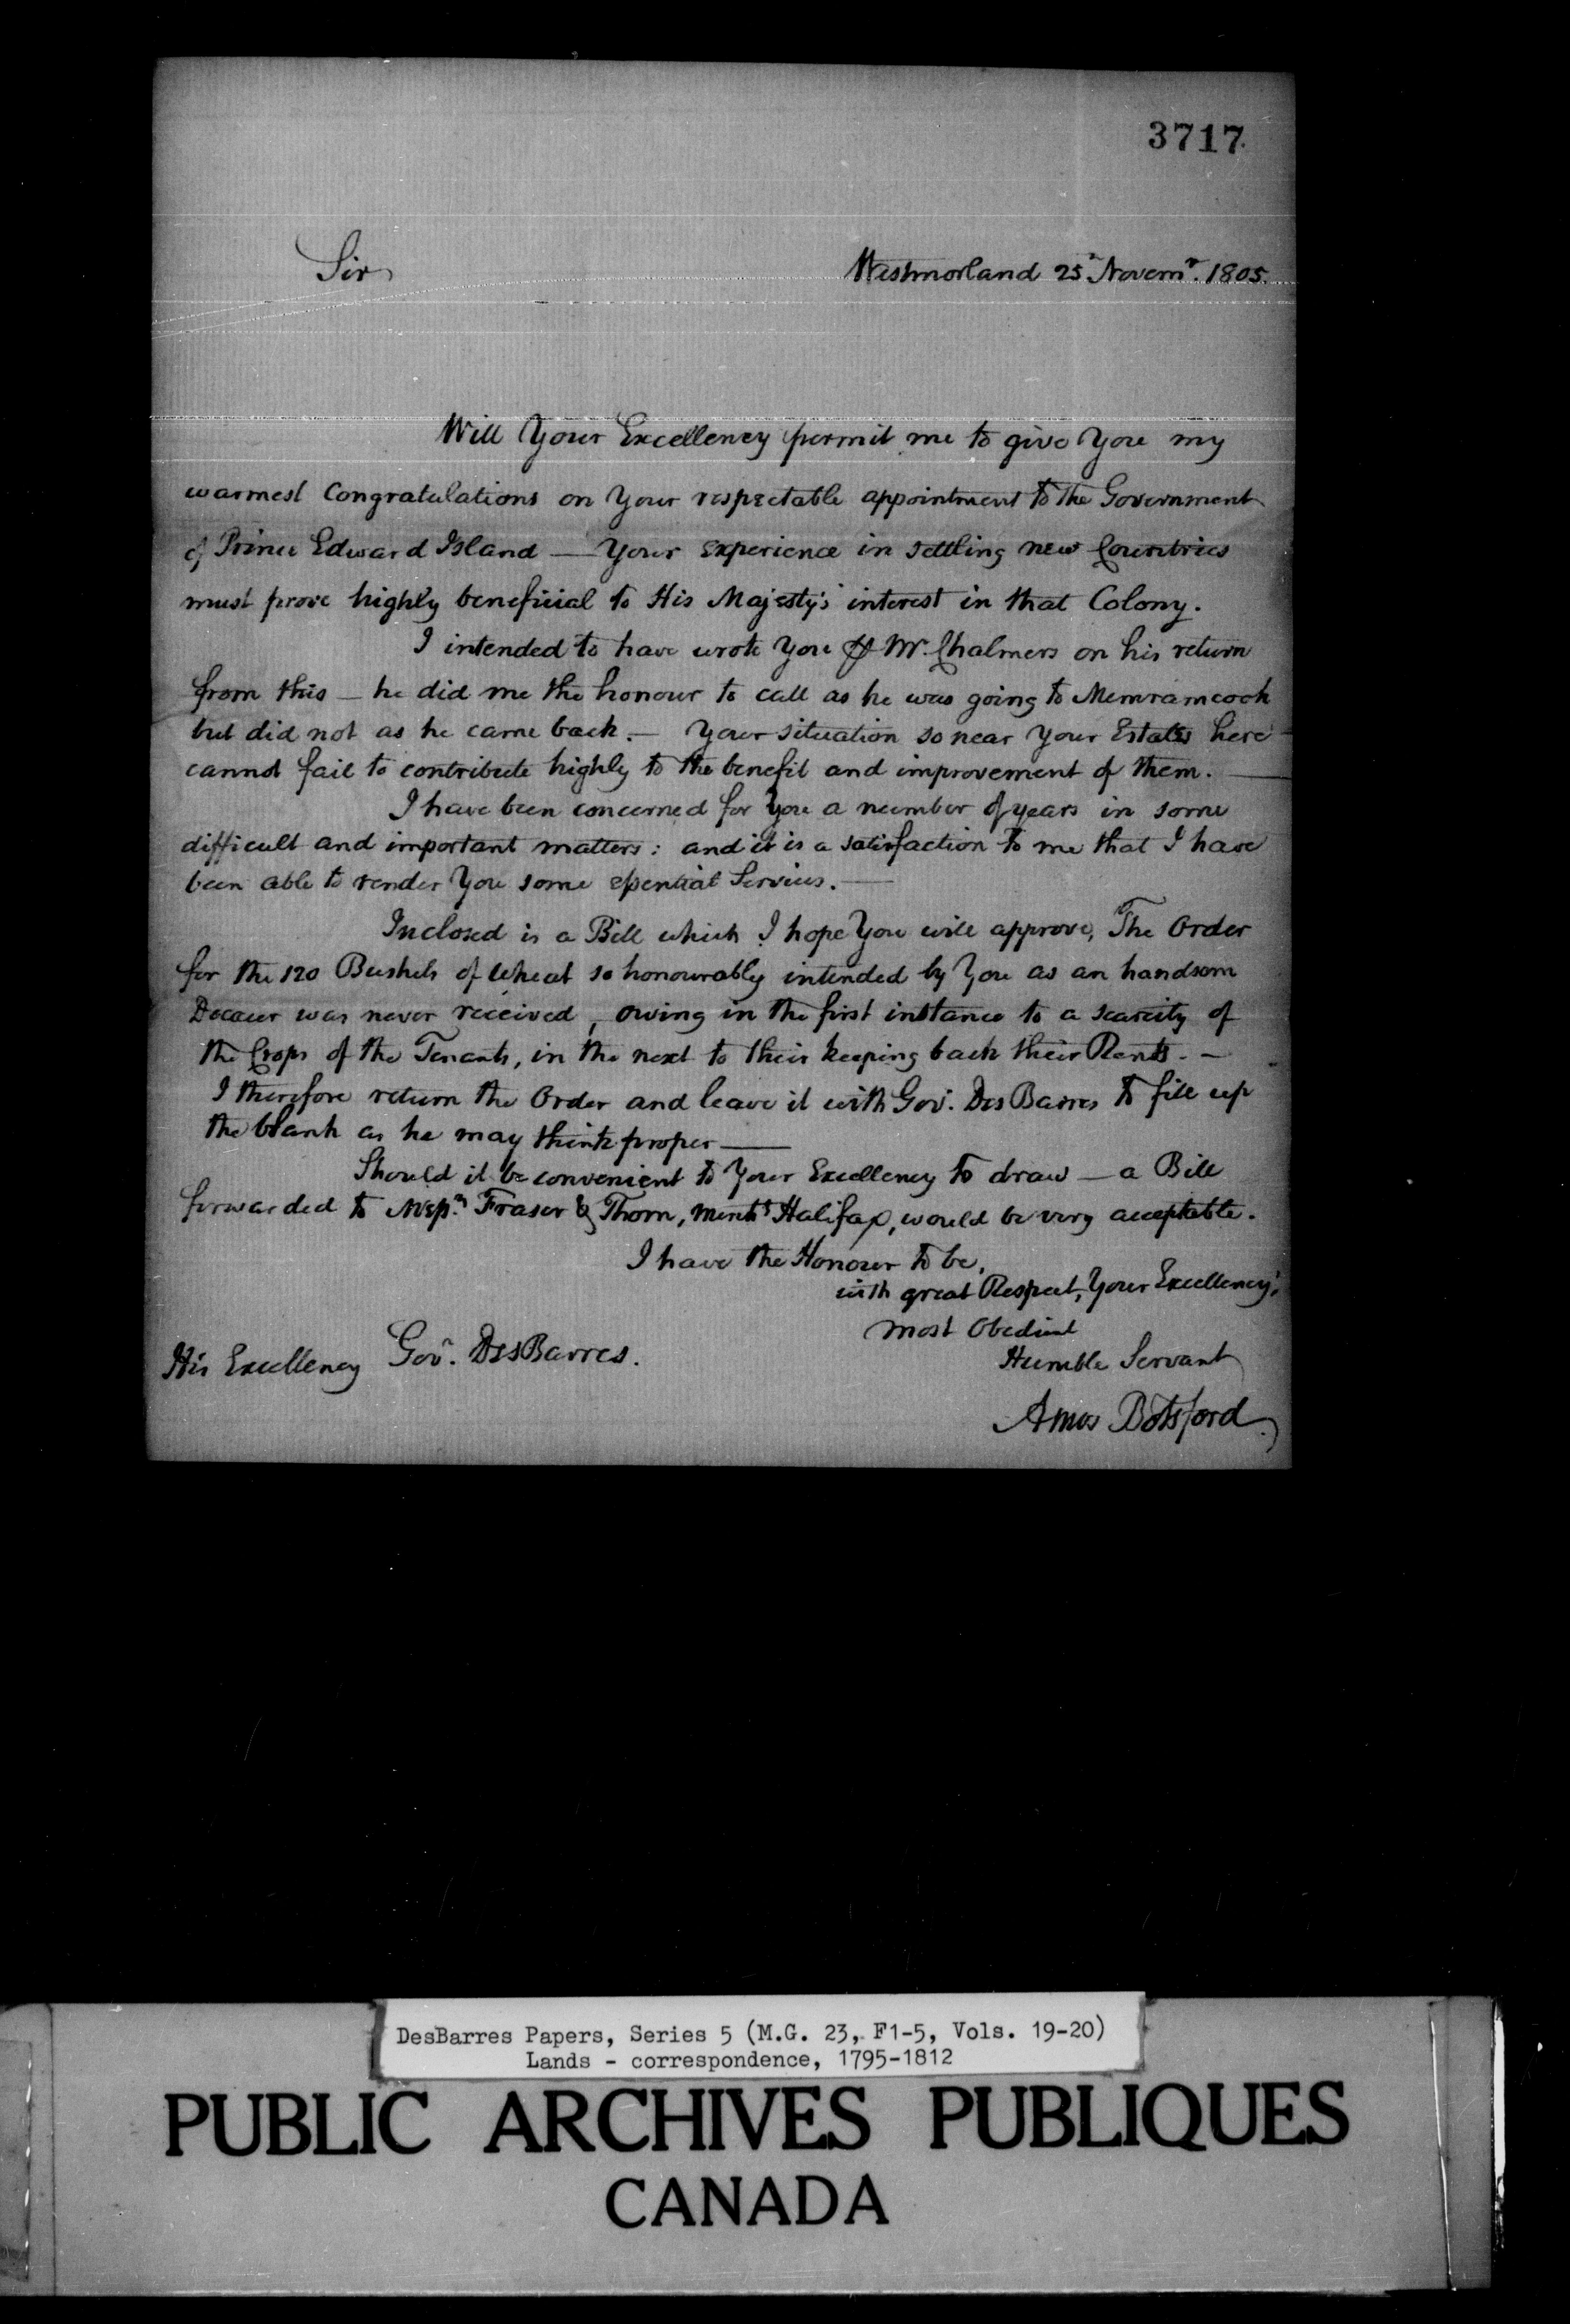 3717
Sir
Westmorland 25th Novemr. 1805.
Will Your Excellency permit me to give You my
warmest Congratulations on Your respectable appointment to the Government
of Prince Edward Island — Your experience in settling new Countries
must prove highly beneficial to His Majesty's interest in that Colony.
I intended to have wrote You ⅌ Mr. Chalmers on his return
from this — he did me the honour to call as he was going to Memramcook
but did not as he came back. — Your situation so near Your Estates here
cannot fail to contribute highly to the benefit and improvement of them. —
I have been concerned for You a number of years in some
difficult and important matters: and it is a satisfaction to me that I have
been able to render You some essential Services. —
Inclosed is a Bill which I hope You will approve, The Order
for the 120 Bushels of Wheat so honourably intended by You as an handsom
was never received, owing in the first instance to a scarcity of
the Crops of the Tenants, in the next to their keeping back their Rents. —
I therefore return the Order and leave it with Govr. Des Barres to fill up
the blank as he may think proper —
Should it be convenient to Your Excellency to draw — a Bill
forwarded to Messrs. Fraser & Thom, Merchts Halifax, would be very acceptable.
I have the Honour to be,
with great Respect, Your Excellency's
most Obedient
His Excellency Govr. DesBarres.
Humble Servant
Amos Botsford
DesBarres Papers, Series 5 (M.G. 23, F1-5, Vols. 19-20)
Lands - correspondence, 1795-1812
PUBLIC ARCHIVES PUBLIQUES
CANADA